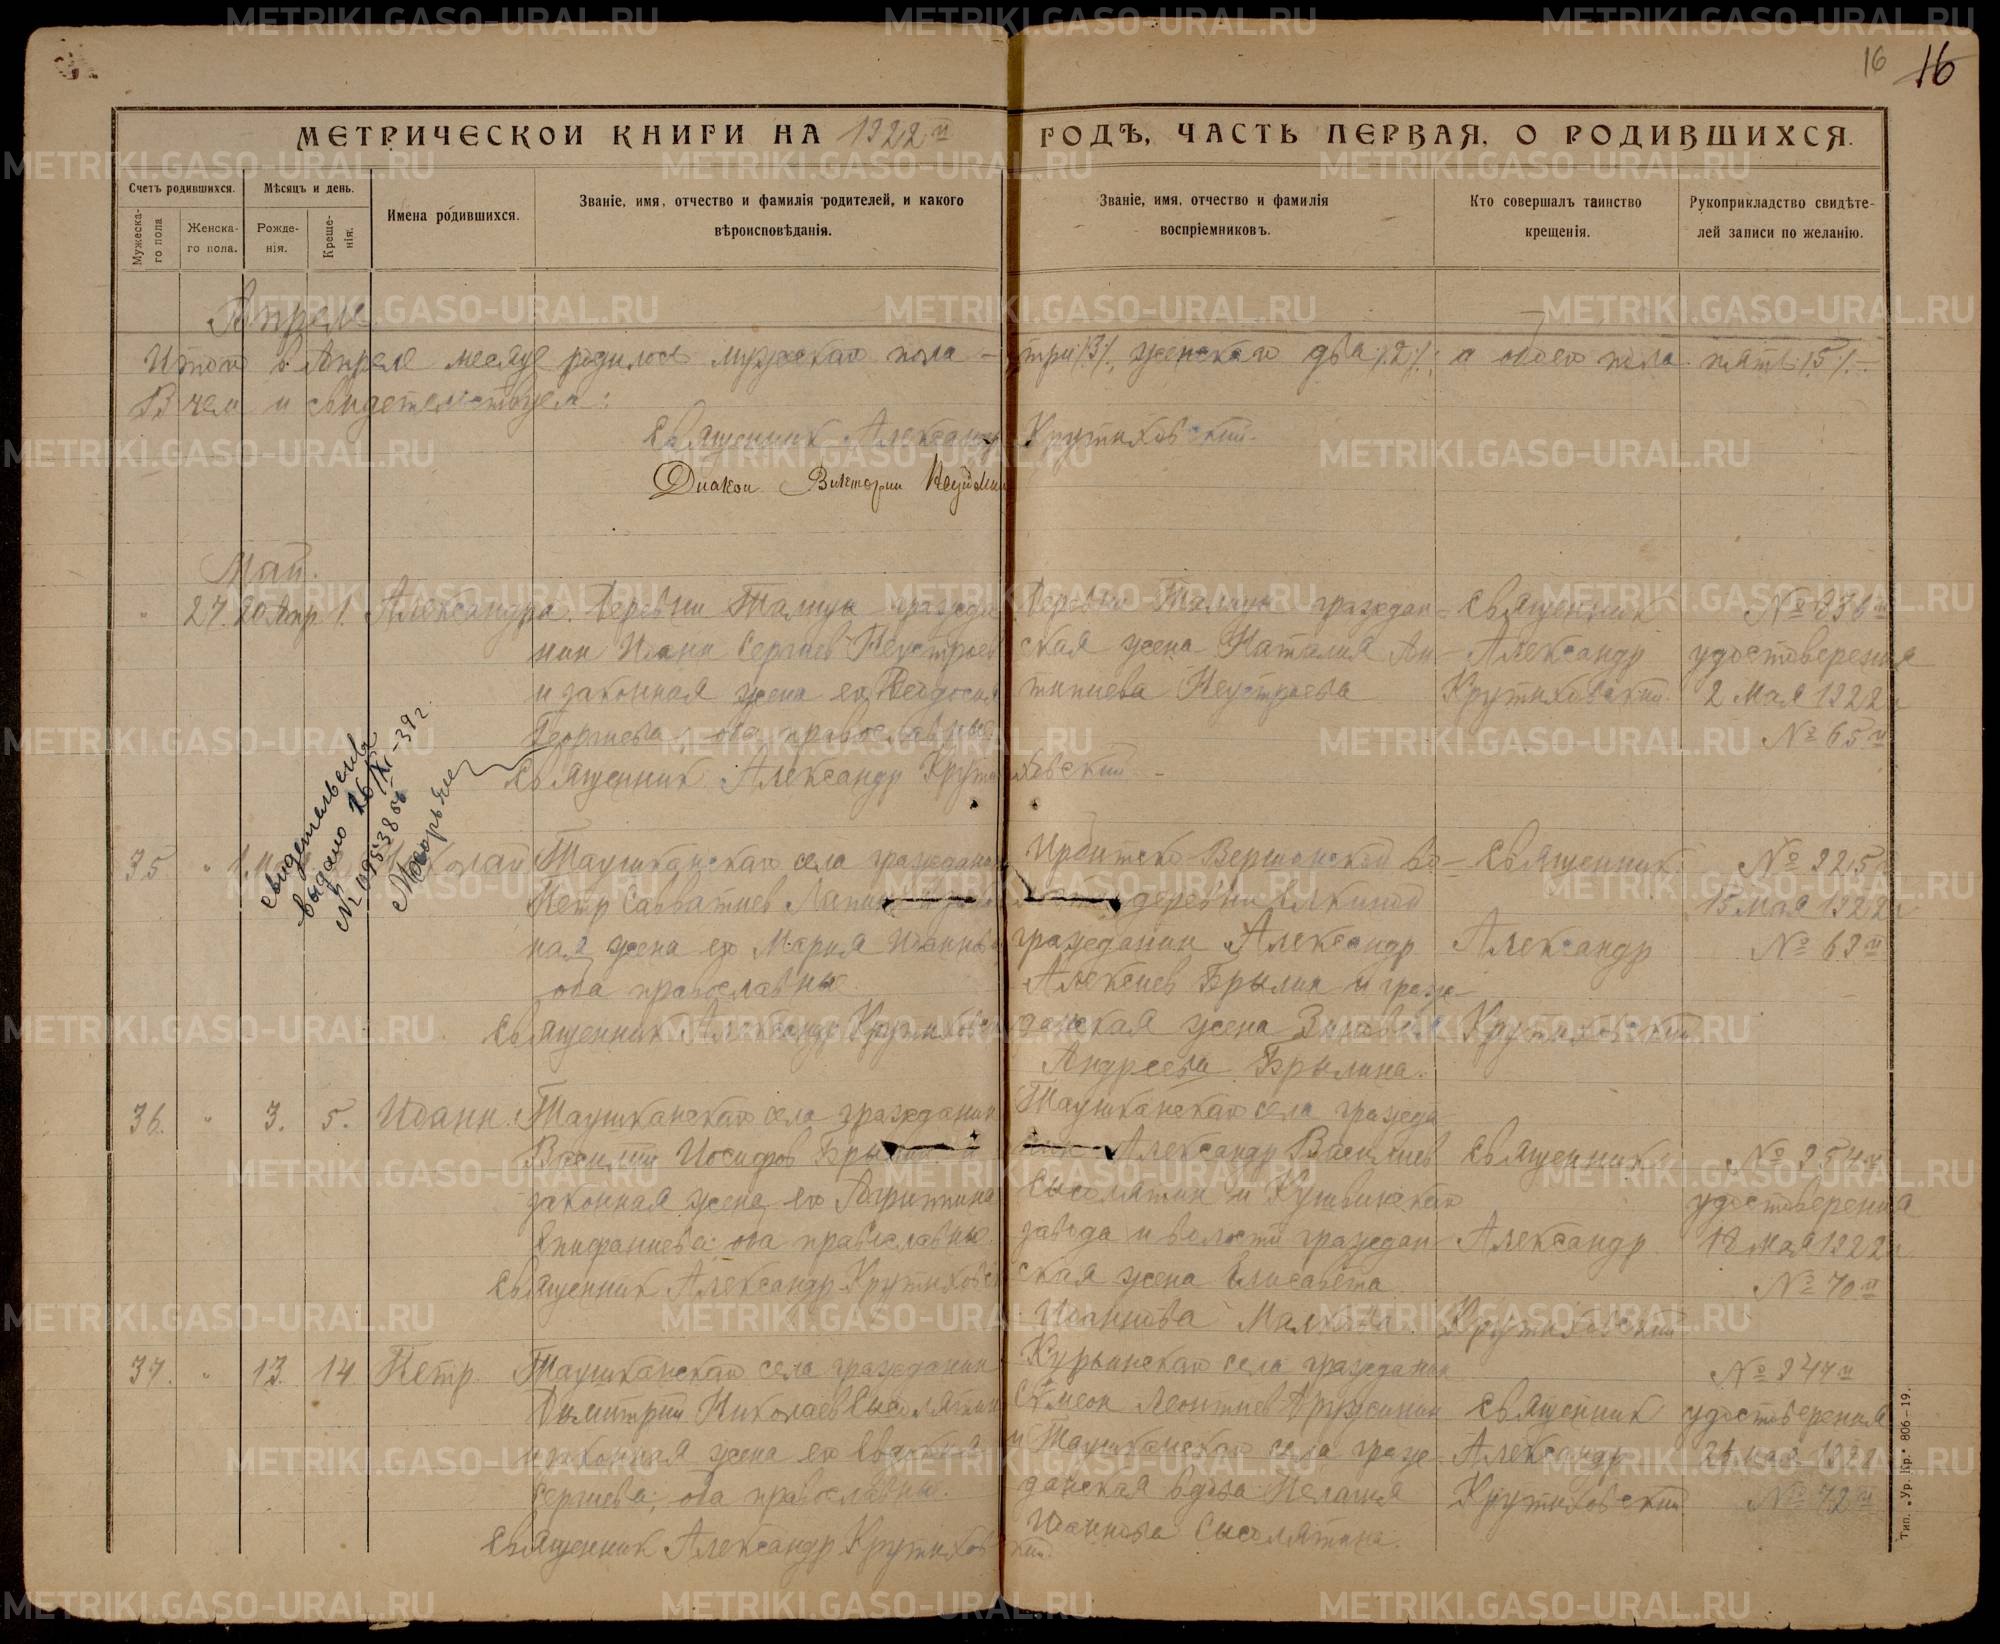 16 16
МЕТРИЧЕСКОЙ КНИГИ НА 1922й ГОДЪ, ЧАСТЬ ПЕРВАЯ, О РОДИВШИХСЯ.
Счетъ родившихся.
Мужеска-
го пола
Женска-
го пола.
Мѣсяцъ и день.
Рожде-
нія.
Креще-
нія.
Имена родившихся.
Званіе, имя, отчество и фамилія родителей, и какого
вѣроисповѣданія.
Званіе, имя, отчество и фамилія
воспріемниковъ.
Кто совершалъ таинство
крещенія.
Рукоприкладство свидѣте-
лей записи по желанію.
Апрель
Итого в Апреле месяце родилось мужскаго пола – три /3/, женскаго два /2/; а обоего пола пять /5/. –
В чем и свидетельствуем:
Священник Александр Крутиховский.
Диакон Викторин Неуймин
Май.
" 27. 20 Апр 1. Александра.
Деревни Талицы гражда-
нин Иоанн Сергиев Неустроев
и законная жена его Феодосия
Георгиева, оба православные.
Священник Александр Крутиховский
Деревни Талицы граждан-
ская жена Наталия Ан-
типиева Неустроева
Священник
Александр
Крутиховский.
удостоверения
2 Мая 1922 г
№ 65й
свидетельство
выдано 16/XI-39 г.
№
35 " 1. Николай
Таушканскаго села гражданин
Петр Савватиев Лапин и закон-
ная жена его Мария Иоаннова
оба православные.
Священник Александр Крутиховский
Ирбитско-Вершинской во-
лости деревни Елкиной
гражданин Александр
Алексиев Брылин и граж-
данская жена
Андреева Брылина.
Священник
Александр
Крутиховский
№ 225й
15 Мая 1922 г
36. " 3. 5. Иоанн.
Таушканскаго села гражданин
Василий Иосифов Брылин и
законная жена его Агриппина
Епифаниева: оба православные.
Священник Александр Крутиховский
Таушканскаго села гражда-
нин Александр Васильев
Сысолятин и Кушвинскаго
завода и волости граждан-
ская жена Елисавета
Иоаннова
Священник
Александр
Крутиховский
удостоверения
Мая 1922 г
№ 70й
37. " 13. 14 Петр.
Таушканскаго села гражданин
Димитрий Николаев Сысолятин
и законная жена его Евдокия
Сергиева; оба православны.
Священник Александр Крутиховский
Курьинскаго села гражданин
Симеон Леонтиев Дружинин
и Таушканскаго села граж-
данская вдова Пелагия
Иоаннова Сысолятина.
Священник
Александр
Крутиховский
№ 247й
удостоверения
мая 1922
№ 72й
Тип. „Ур. Кр." 806—19.
METRIKI.GASO-URAL.RU